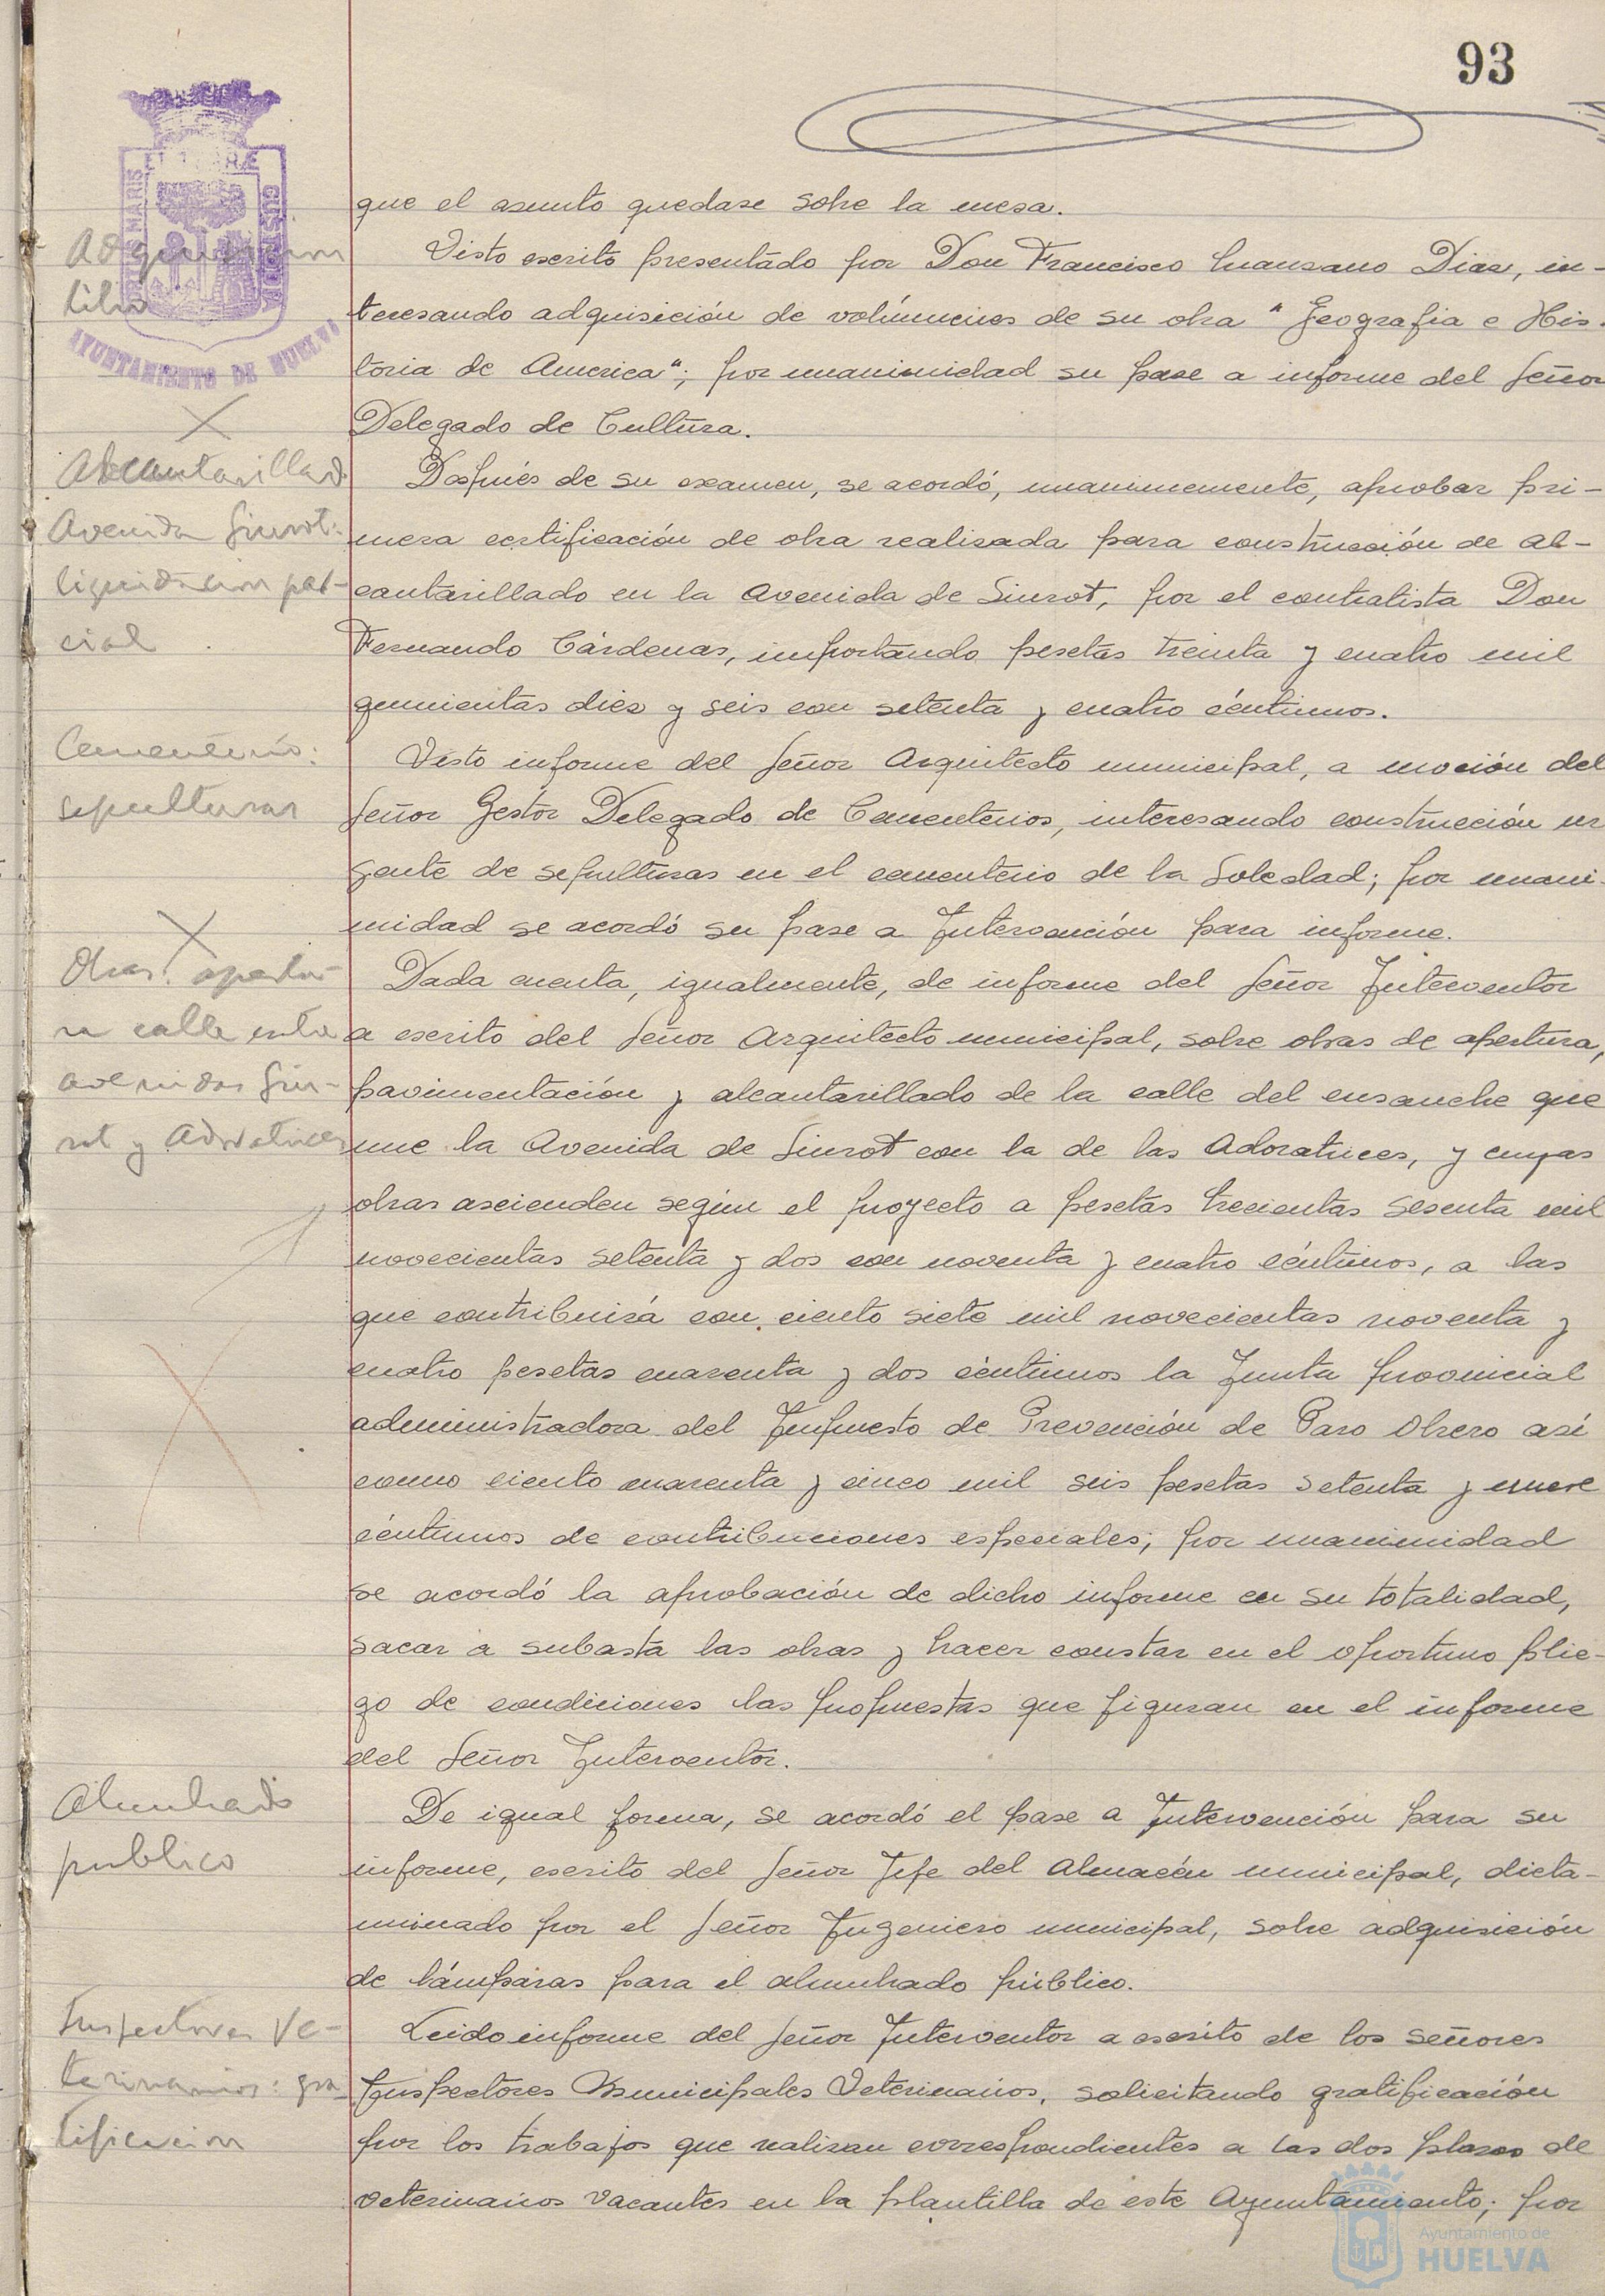 93
que el asunto quedase sobre la mesa.
Adquisicion
libro
Visto escrito presentado por Don Francisco Manzano Diaz, in-
teresando adquisición de volúmenes de su obra "Geografia e His-
toria de America"; por unanimidad su pase a informe del Señor
Delegado de Cultura.
Alcantarillado
Avenida Siurot:
liquidacion par-
cial
Después de su examen, se acordó, unanimemente, aprobar pri-
mera certificación de obra realizada para construcción de al-
cantarillado en la Avenida de Siurot, por el contratista Don
Fernando Cárdenas, importando pesetas treinta y cuatro mil
quinientas diez y seis con setenta y cuatro céntimos.
Cementerio:
sepulturas
Visto informe del Señor Arquitecto municipal, a moción del
Señor Gestor Delegado de Cementerios, interesando construcción ur
gente de sepulturas en el cementerio de la Soledad; por unani-
midad se acordó su pase a Intervención para informe.
Obras: apertu-
ra calle entre
avenidas Siu-
rot y Adoratrices
Dada cuenta, igualmente, de informe del Señor Interventor
a escrito del Señor Arquitecto municipal, sobre obras de apertura,
pavimentación y alcantarillado de la calle del ensanche que
une la Avenida de Siurot con la de las Adoratrices, y cuyas
obras ascienden según el proyecto a pesetas trecientas sesenta mil
novecientas setenta y dos con noventa y cuatro céntimos, a las
que contribuirá con ciento siete mil novecientas noventa y
cuatro pesetas cuarenta y dos céntimos la Junta provincial
administradora del Impuesto de Prevención de Paro Obrero así
como ciento cuarenta y cinco mil seis pesetas setenta y nueve
céntimos de contribuciones especiales; por unanimidad
se acordó la aprobación de dicho informe en su totalidad,
sacar a subasta las obras y hacer constar en el oportuno plie-
go de condiciones las propuestas que figuran en el informe
del Señor Interventor.
Alumbrado
publico
De igual forma, se acordó el pase a Intervención para su
informe, escrito del Señor Jefe del Almacén municipal, dicta-
minado por el Señor Ingeniero municipal, sobre adquisición
de lámparas para el alumbrado público.
Inspectores Ve-
terinarios: gra
tificacion
Leido informe del Señor Interventor a escrito de los señores
Inspectores Municipales Veterinarios, solicitando gratificación
por los trabajos que realizan correspondientes a las dos plazas de
veterinarios vacantes en la plantilla de este Ayuntamiento; por
AYUNTAMIENTO DE HUELVA
Ayuntamiento de
HUELVA